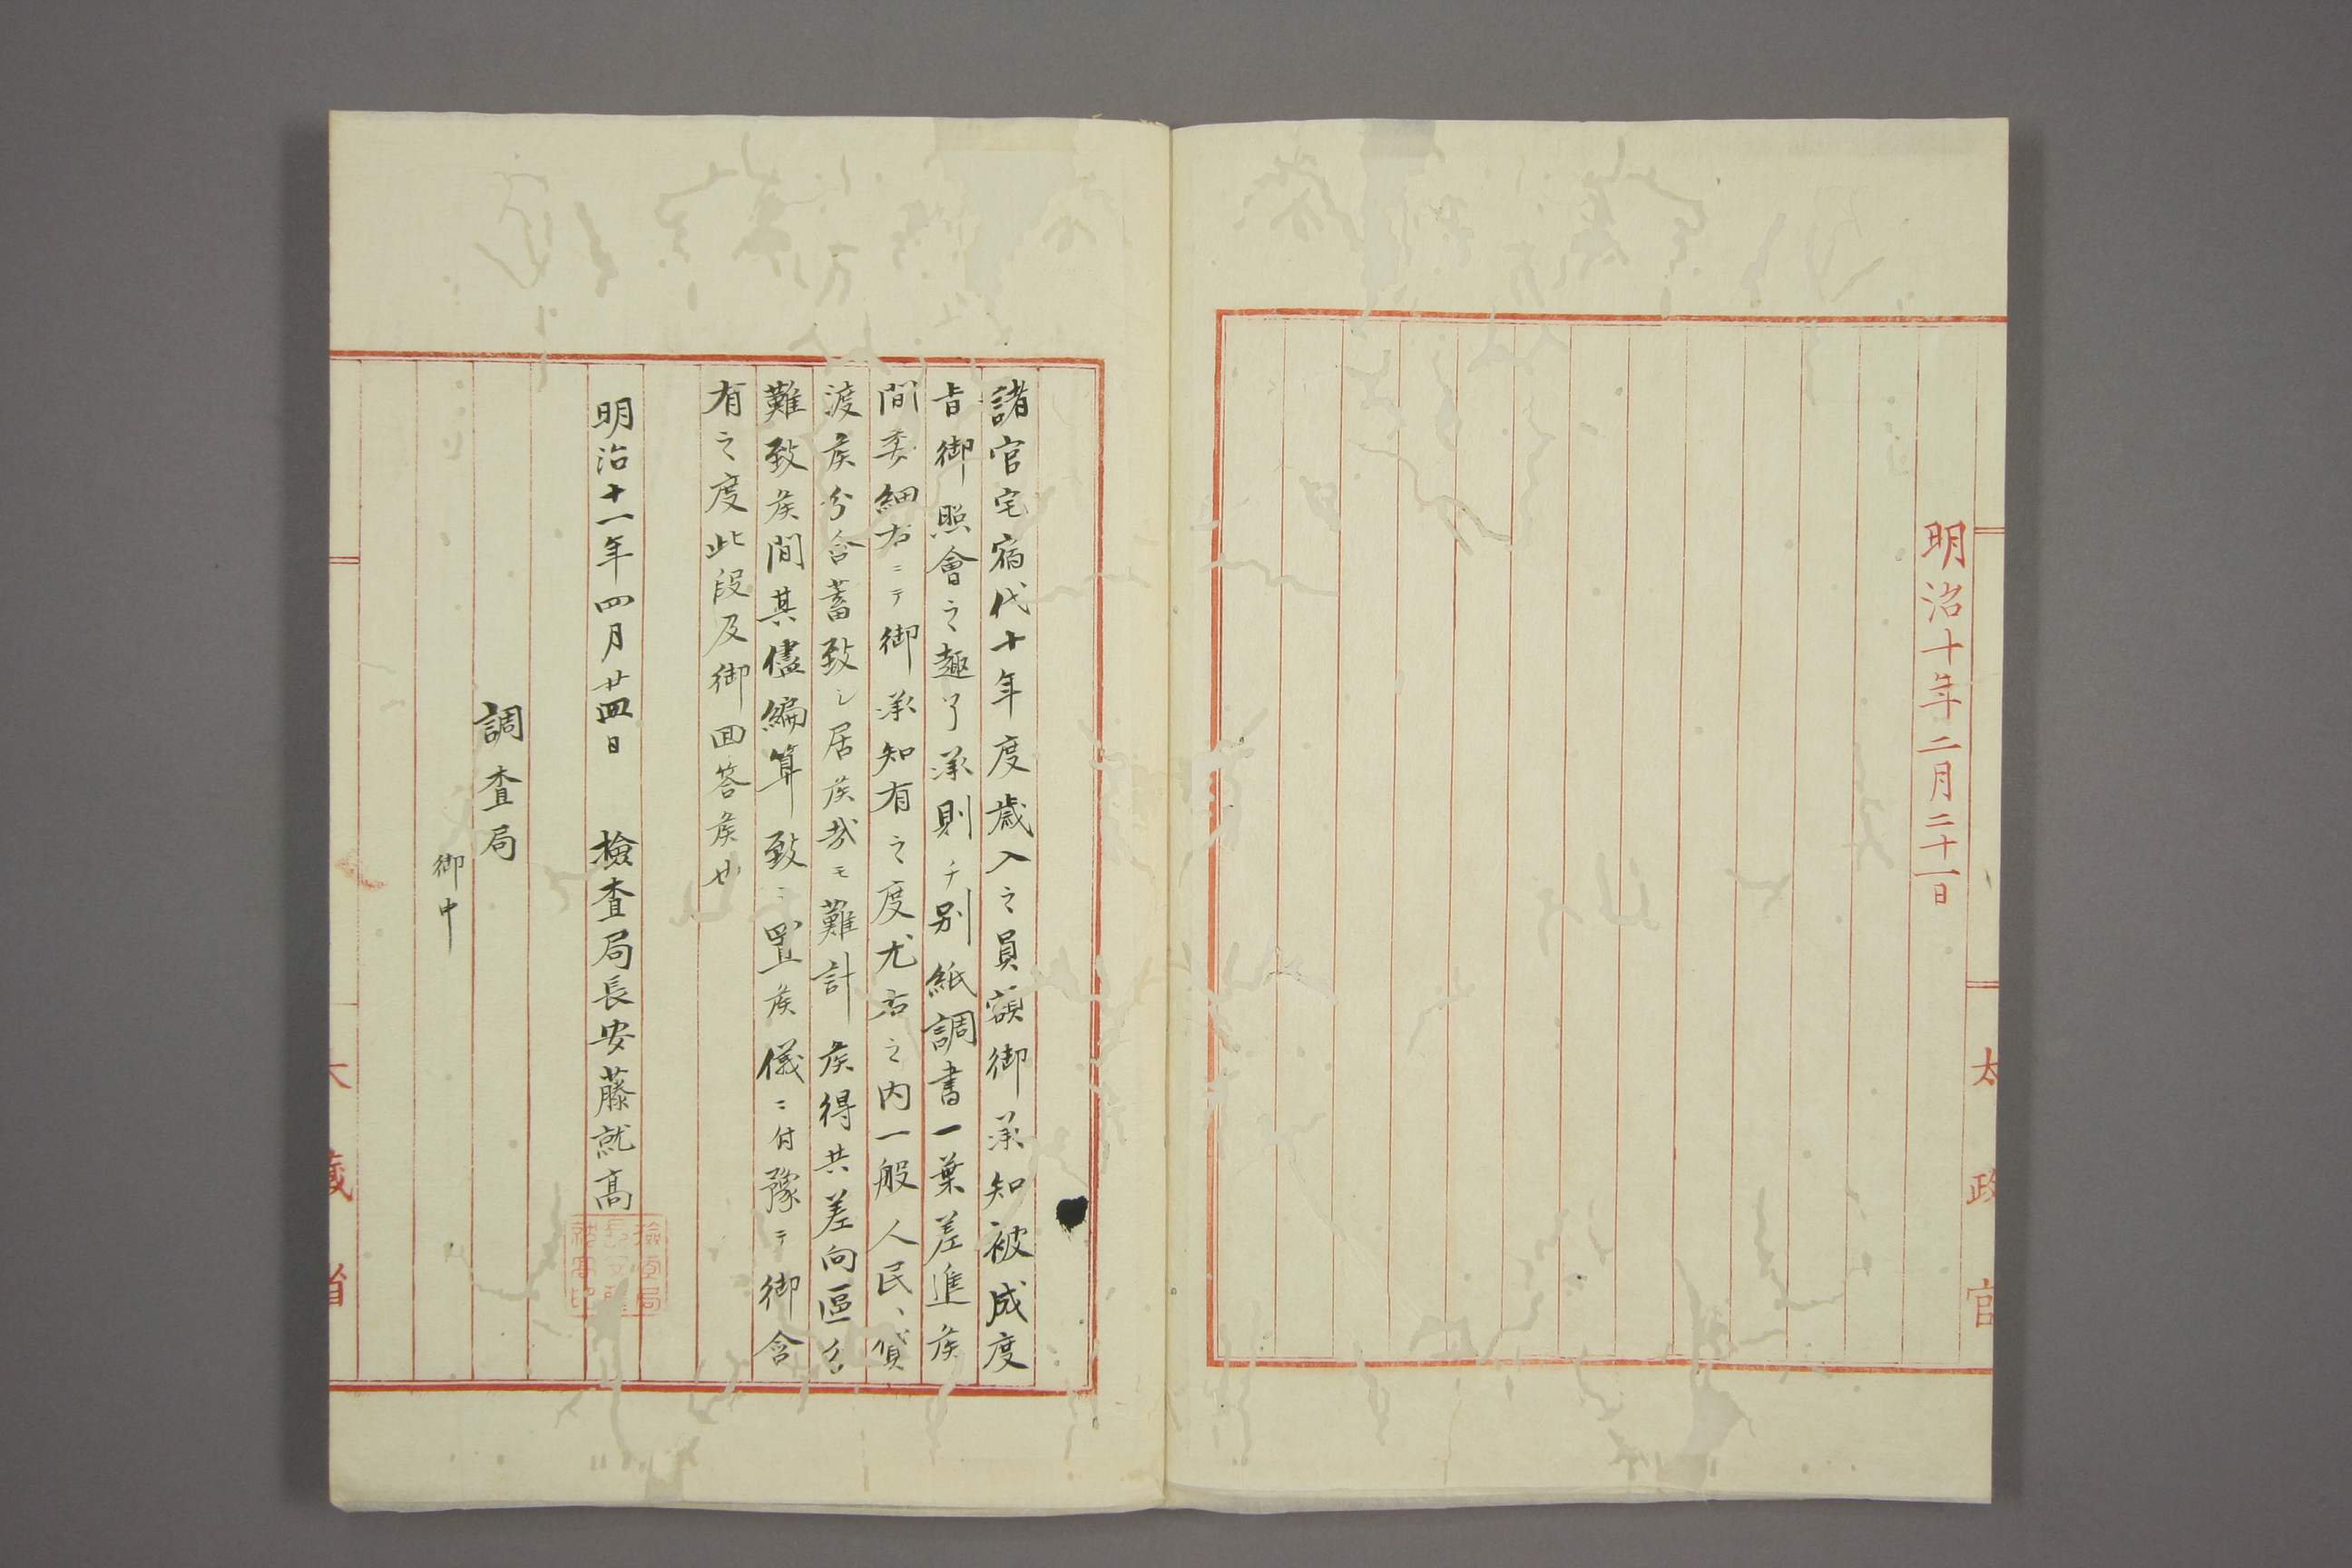 明治十年二月二十一日
太政官
諸官宅宿代十年度歳入之員額御承知被成度
旨御照會之趣了承則チ別紙調書一葉差進候
間委細右ニテ御承知有之度尤右之内一般人民ヘ貸
渡候分合蓄致シ居候哉モ難計候得共差向區分
難致候間其儘編算致シ置候儀ニ付豫テ御含
有之度此段及御回答候也
明治十一年四月廿四日 檢査局長安藤就高
檢査局長安藤就高印
調査局
御中
大藏省